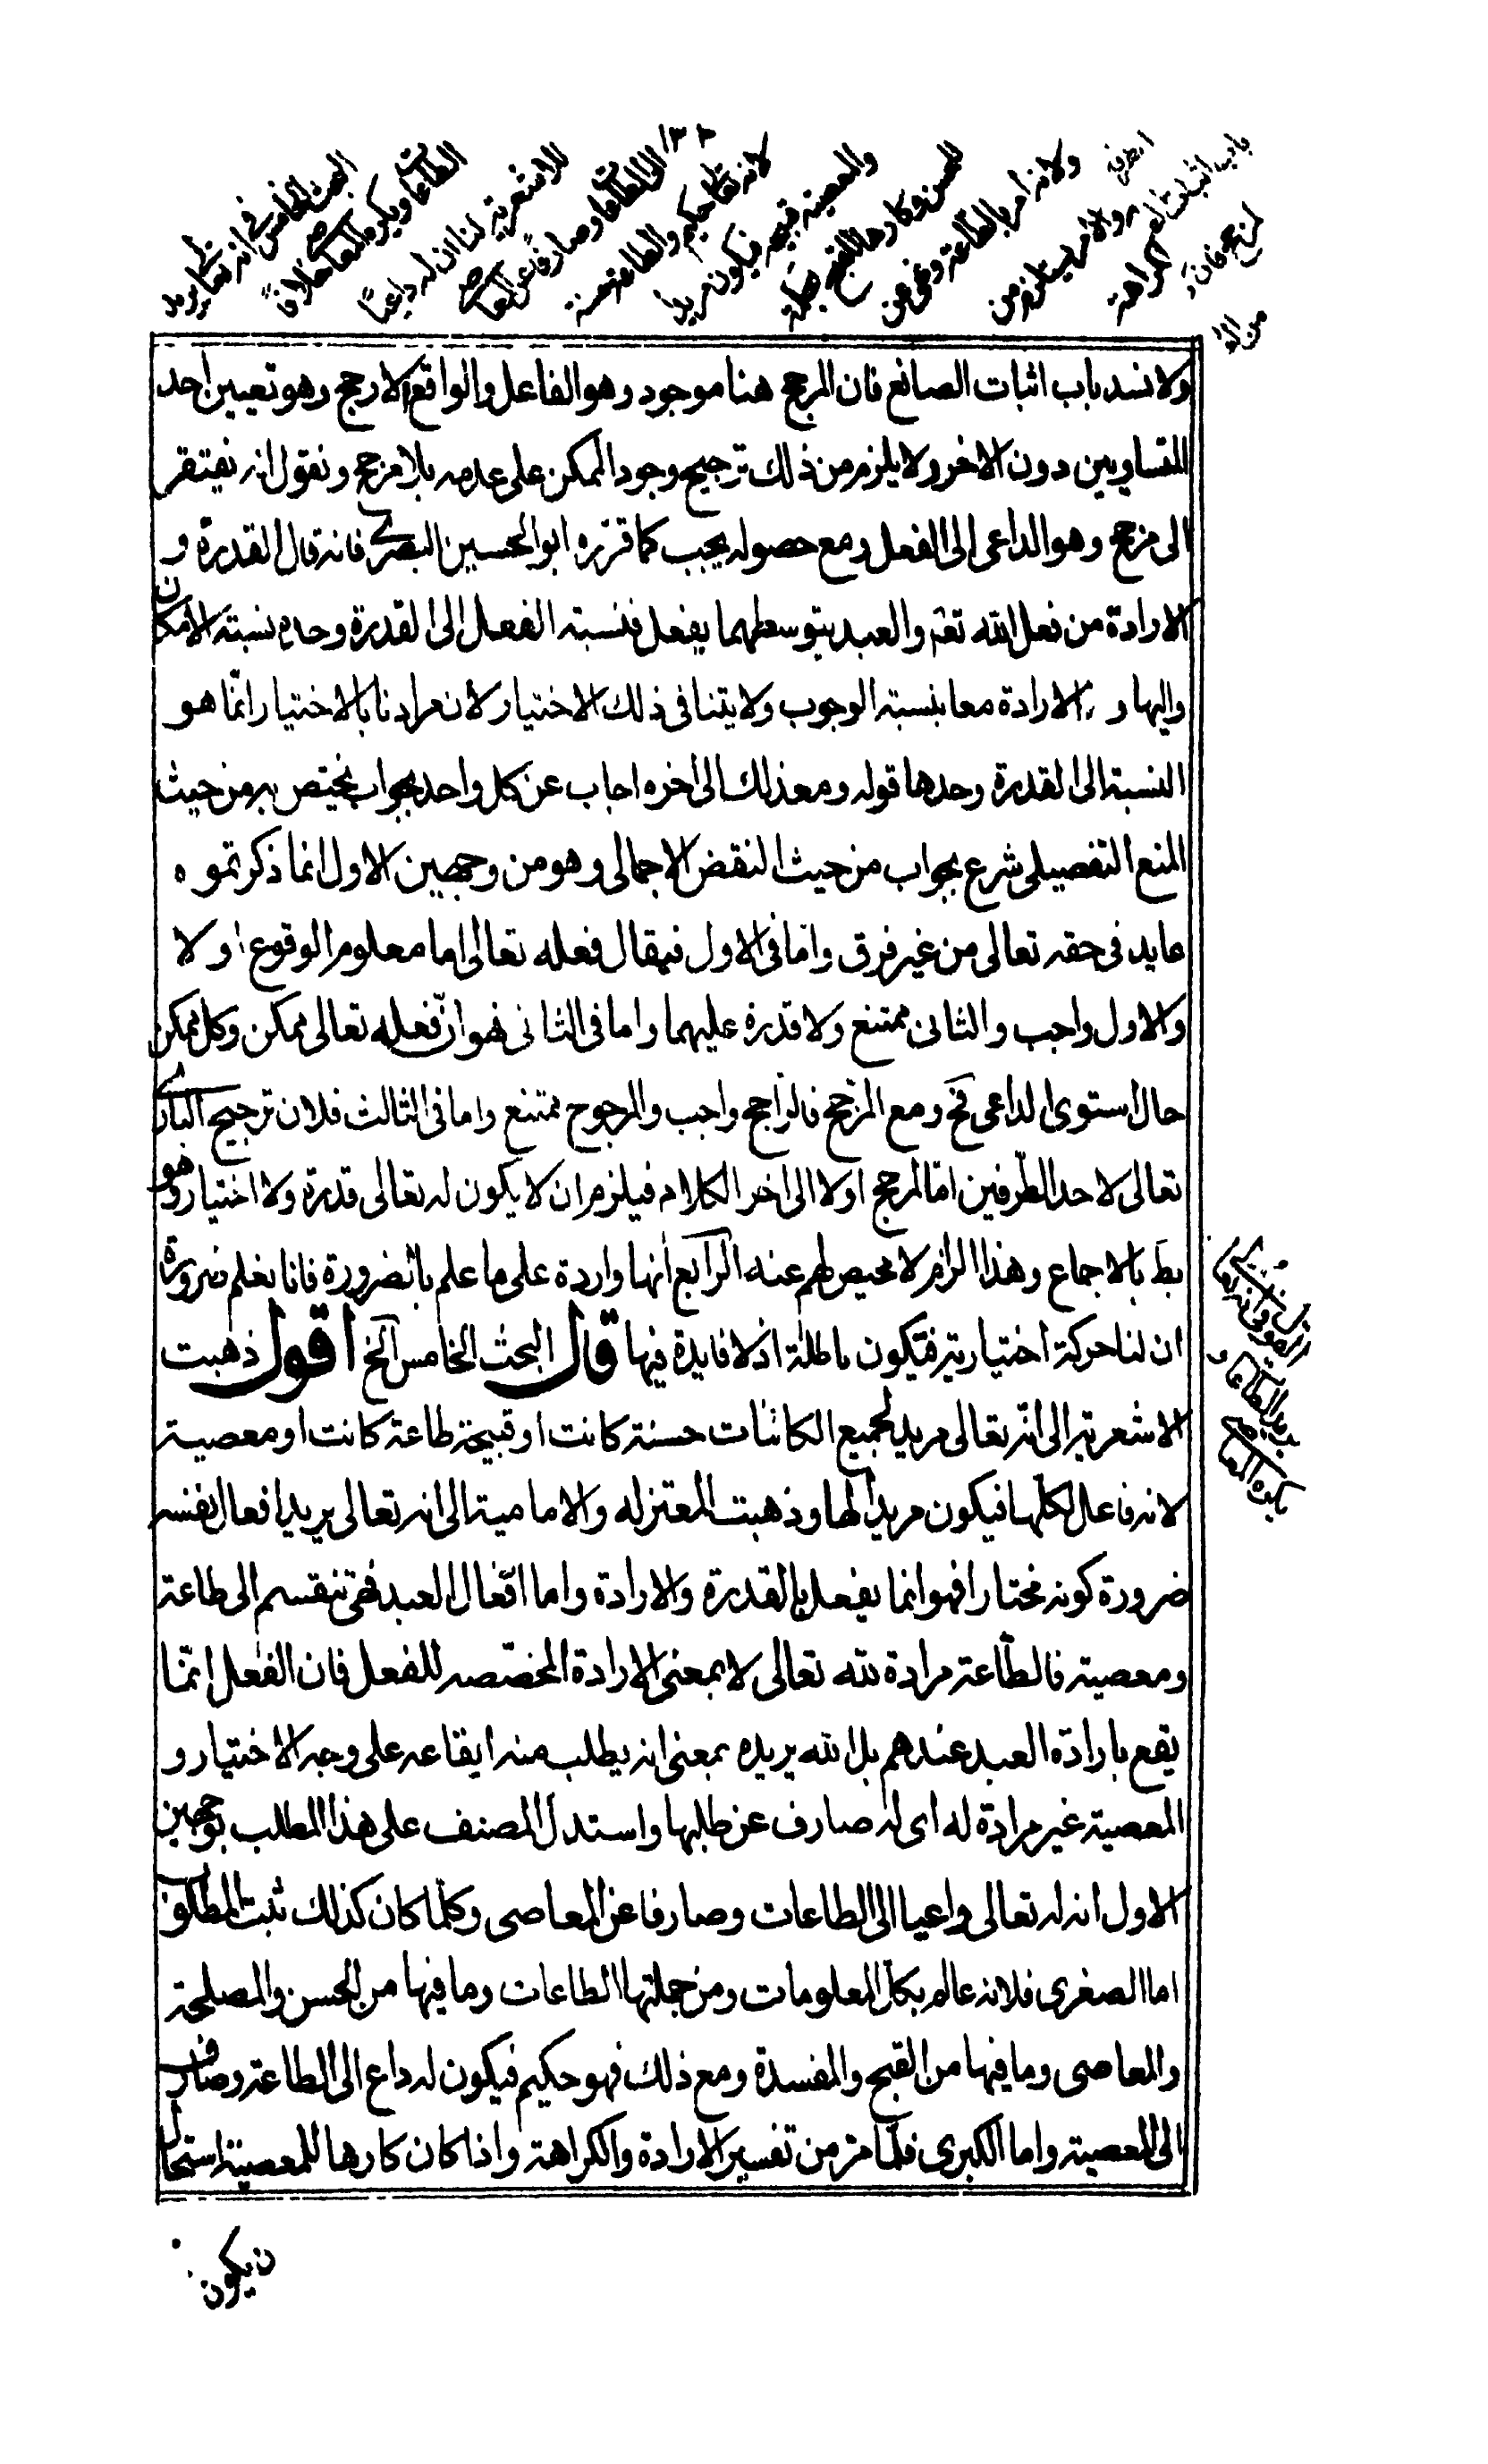 ١٣٢
البحث الخامس في انه تعالى يريد
الطاعات ويكره المعاصي خلافاً
للاشعرية لنا ان له داعياً
الى الطاعات وصارفاً عن المعاصي
لانه تعالى حكيم والطاعة حسنة
والمعصية قبيحة فيكون مريدا
للحسن وكارها للقبيح
ولانه امر بالطاعة ونهى عن
ولا نسد باب اثبات الصانع فان المرجح هنا موجود وهو الفاعل والواقع الارجح وهو تعيين احد
المتساويين دون الاخر ولا يلزم من ذلك ترجيح وجود الممكن على عدمه بلا مرجح ونقول انه يفتقر
الى مرجح وهو الداعي الى الفعل ومع حصوله يجب كما قرّره ابو الحسين البصري فانه قال القدرة و
الارادة من فعل الله تعم والعبد بتوسطهما يفعل فنسبته الفعل الى القدرة وحده نسبته الامكان
واليها و الارادة معا بنسبته الوجوب ولا يتنافى ذلك الاختيار لان مرادنا بالاختيار انّما هو
النسبة الى القدرة وحدها قوله ومعذلك الى اخره اجاب عن كل واحد بجواب يختص به من حيث
المنع التفصيلي شرع بجواب من حيث النقض الاجمالي وهو من وجهين الاول انما ذكرتموه
عايد في حقه تعالى من غير فرق وامّا في الاول فيقال فعله تعالى اما معلوم الوقوع او لا
والاول واجب والثاني ممتنع ولا قدرة عليهما واما في الثاني فهو انّ فعله تعالى ممكن وكل ممكن
حال استوى الداعي فح ومع المرّجح فالراجح واجب والمرجوح ممتنع واما في الثالث فلان ترجيح الباري
تعالى لاحد الطّرفين امّا لمرجح اولا الى اخر الكلام فيلزم ان لا يكون له تعالى قدرة ولا اختيار وهو
بط بالاجماع وهذا الزام لا محيص لهم عنه الرابع انها واردة على ما علم بالضرورة فانا نعلم ضرورة
ان لنا حركة اختيارية فتكون باطلة اذ لا فايدة فيها قال البحث الخامس الخ اقول ذهبت
الاشعرية الى انّه تعالى مريد لجميع الكائنات حسنة كانت او قبيحة طاعة كانت او معصية
لانه فاعل لكلها فيكون مريداً لها وذهبت المعتزله والامامية الى انه تعالى يريد افعال نفسه
ضرورة كونه مختارا فهو انما يفعل بالقدرة والارادة واما افعال العبد فهي تنقسم الى طاعة
ومعصية فالطّاعة مرادة لله تعالى لا بمعنى الارادة المخصّصه للفعل فان الفعل انّما
يقع بارادة العبد عندهم بل الله يريده بمعنى انه يطلب منه ايقاعه على وجه الاختيار و
المعصية غير مرادة له اي له صارف عن طلبها واستدل المصنف على هذا المطلب بوجهين
الاول انه له تعالى داعيا الى الطاعات وصارفا عن المعاصي وكلما كان كذلك ثبت المطلوب
اما الصغرى فلانه عالم بكل المعلومات ومن جملتها الطاعات وما فيها من الحسن والمصلحة
والمعاصي وما فيها من القبح والمفسدة ومع ذلك فهو حكيم فيكون له داع الى الطاعة وصارف
الى المعصية واما الكبرى فلما مرّ من تفسير الارادة والكراهة واذا كان كارها للمعصية استحال
فيكون